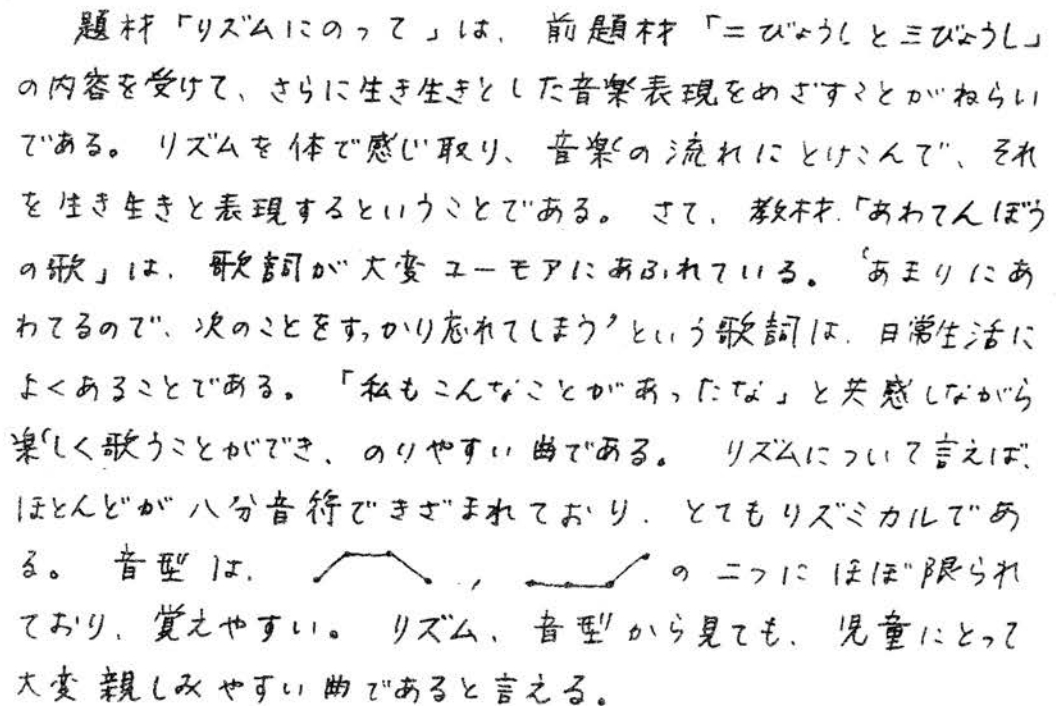 題材「リズムにのって」は、前題材「二びょうしと三びょうし」
の内容を受けて、さらに生き生きとした音楽表現をめざすことがねらい
である。リズムを体で感じ取り、音楽の流れにとけこんで、それ
を生き生きと表現するということである。さて、教材「あわてんぼう
の歌」は、歌詞が大変ユーモアにあふれている。‘あまりにあ
わてるので、次のことをすっかり忘れてしまう’という歌詞は、日常生活に
よくあることである。「私もこんなことがあったな」と共感しながら
楽しく歌うことができ、のりやすい曲である。リズムについて言えば、
ほとんどが八分音符できざまれており、とてもリズミカルであ
る。音型は、 、 の二つにほぼ限られ
ており、覚えやすい。リズム、音型から見ても、児童にとって
大変親しみやすい曲であると言える。